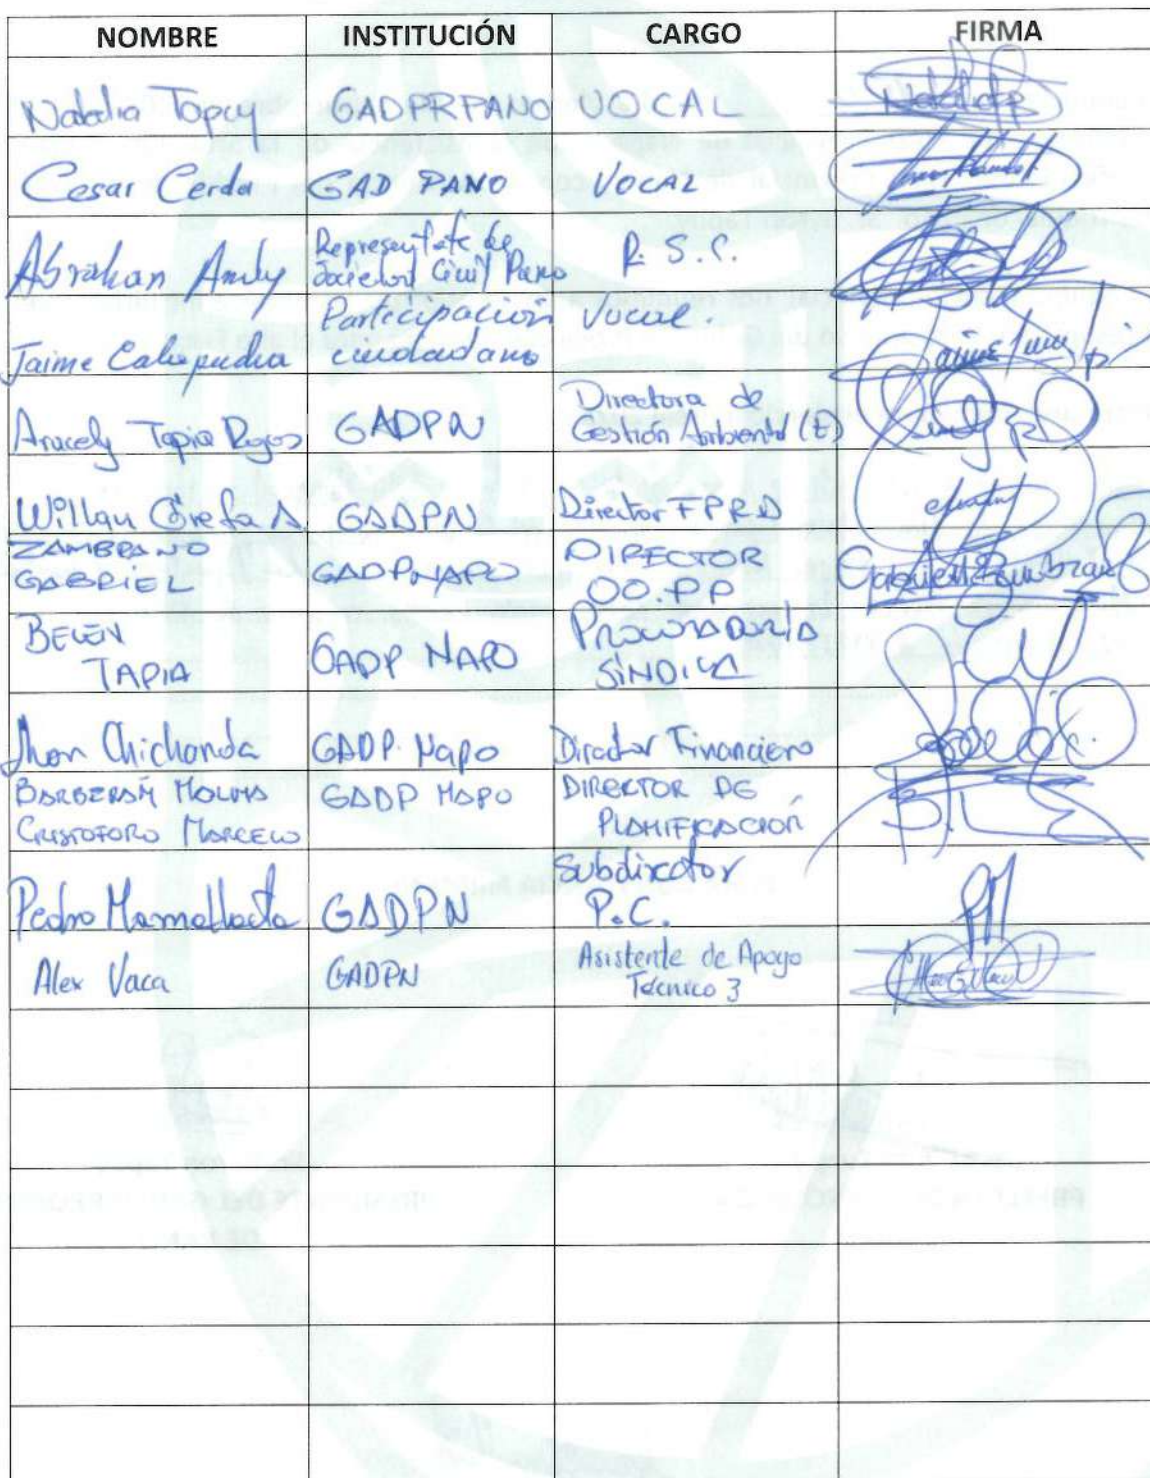 NOMBRE INSTITUCIÓN CARGO FIRMA
Natalia Tapuy GADPRPANO VOCAL
Cesar Cerda GAD PANO VOCAL
Abrahan Andy Representate de R. S. C.
Sociedad Civil Pano
Partecipación Vocal.
Jaime Calapucha ciudadano
Aracely Tapia Rojas GADPN Directora de
Gestión Ambiental (E)
Willan Grefa A. GADPN Director FPRD
ZAMBRANO
GABRIEL GADPNAPO DIRECTOR
OO.PP
BELÉN
TAPIA GADP NAPO PROCURADURÍA
SINDICA
Jhon Chichanda GADP Napo Director Financiero
BARBERÁN MOLINA GADP NAPO DIRECTOR DE
CRISTOFORO MARCELO PLANIFICACIÓN
Pedro Mamallacta GADPN Subdirector
P.C.
Alex Vaca GADPN Asistente de Apoyo
Técnico 3